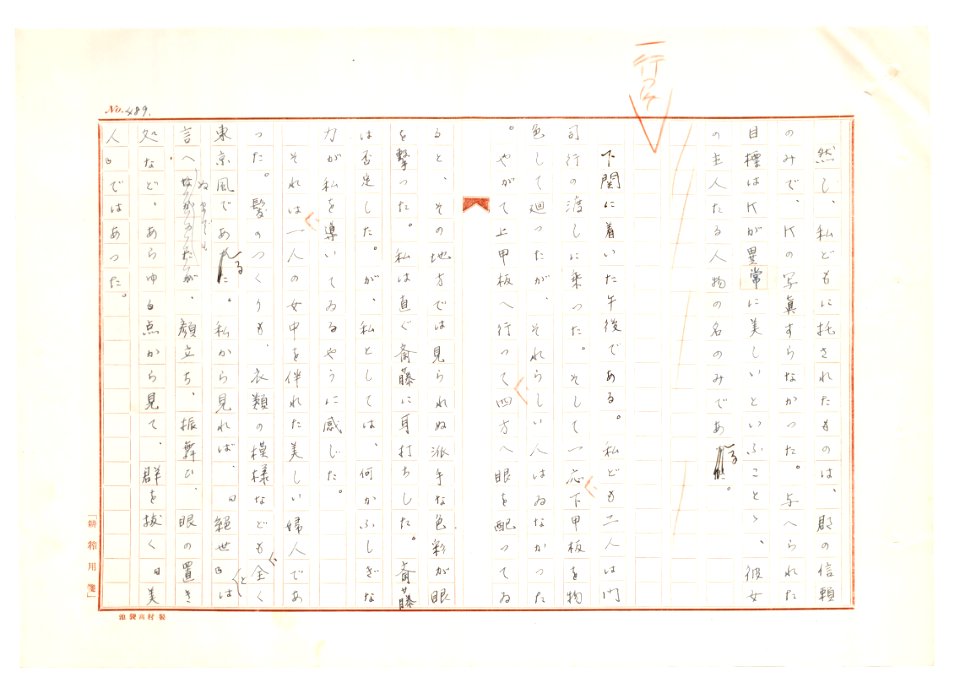 No. 489.
一行アケ
然し、私どもに托されたものは、郡の信頼
のみで、Kの写真すらなかつた。与へられた
目標はKが異常に美しいといふことゝ、彼女
の主人たる人物の名のみである。
下関に着いた午後である。私ども二人は門
司行の渡しに乗つた。そして一応下甲板を物
色して廻つたが、それらしい人はゐなかつた
。やがて上甲板へ行つて四方へ眼を配つてゐ
ると、その地方では見られぬ派手な色彩が眼
を撃つた。私は直ぐ斎藤に耳打ちした。斎藤
は否定した。が、私としては、何かふしぎな
力が私を導いてゐるやうに感じた。
それは一人の女中を伴れた美しい婦人であ
つた。髪のつくりも、衣類の模様なども全く
東京風である。私から見れば、〝絶世〟とは
言へぬまでも、顔立ち、振舞ひ、眼の置き
処など、あらゆる点から見て、群を抜く〝美
人〟ではあつた。